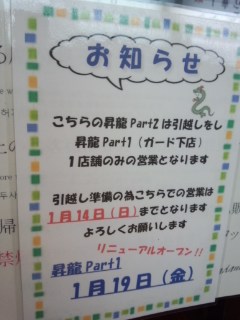 お知らせ
こちらの昇龍Part2は引越しをし
昇龍Part1(ガード下店)
1店舗のみの営業となります
引越し準備の為こちらでの営業は
1月14日(日)までとなります
よろしくお願いします
リニューアルオープン!!
昇龍Part1
1月19日(金)